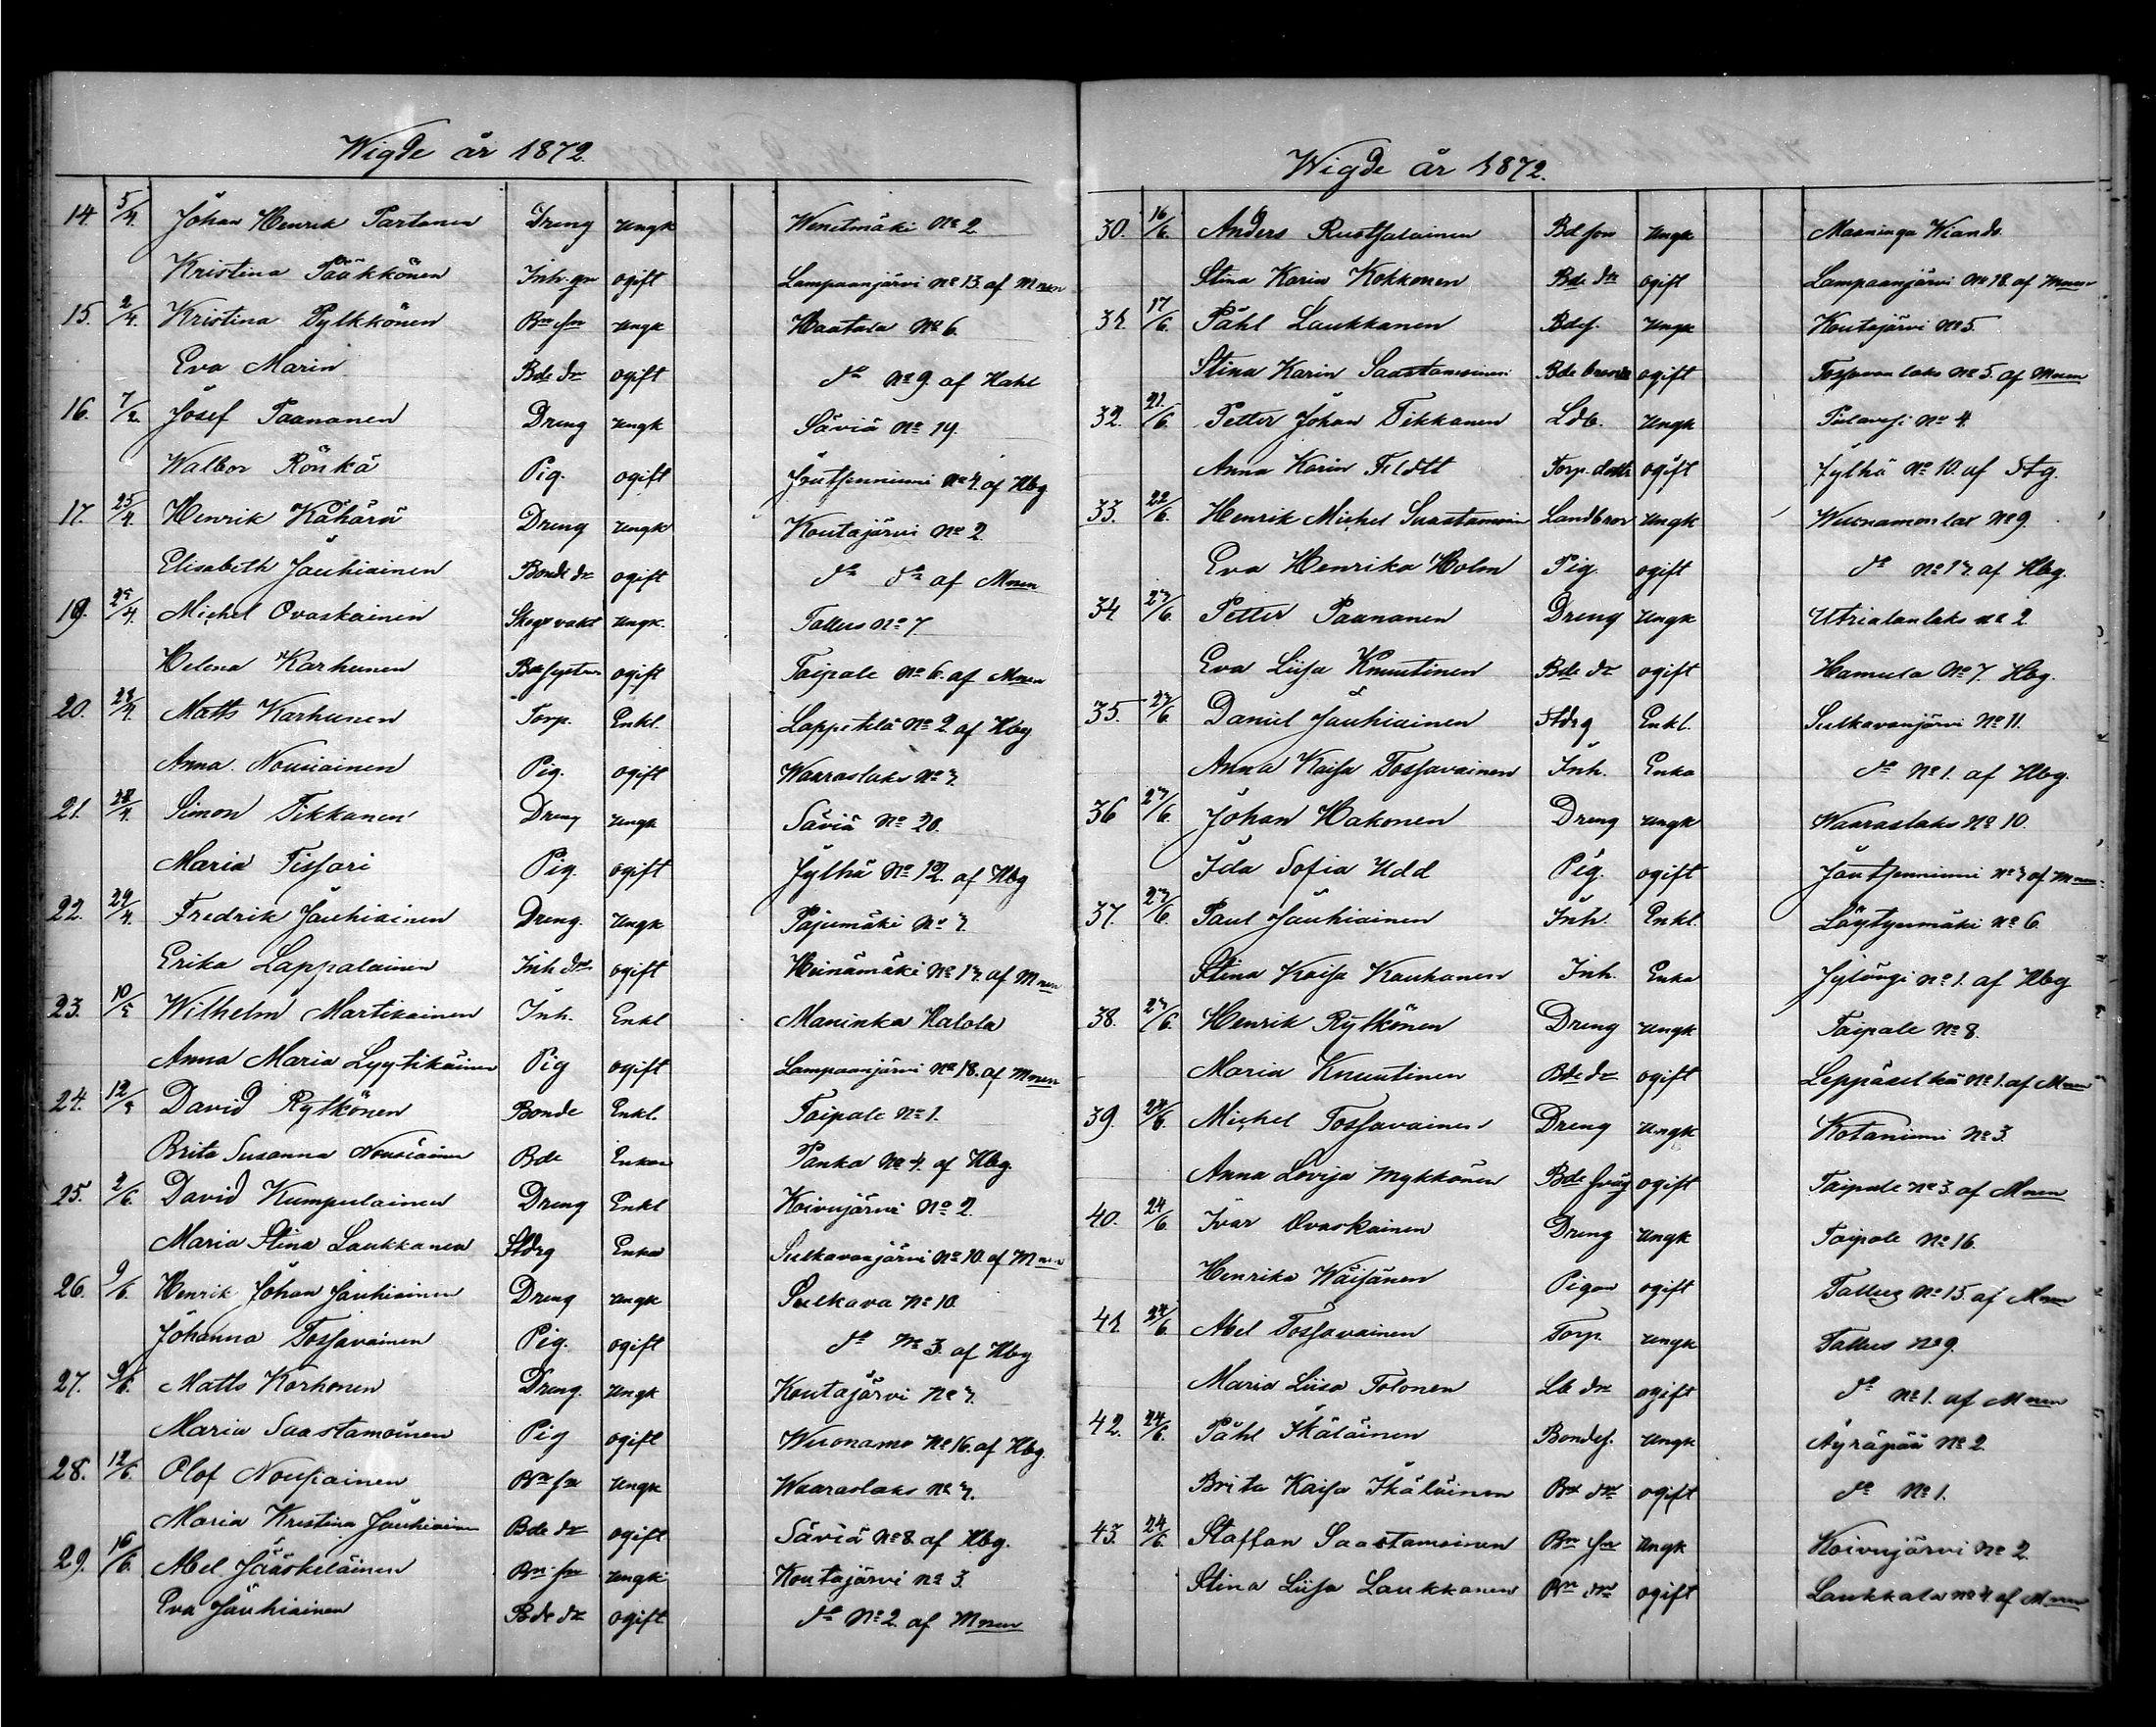 Wigde år 1872.
14. 5/4. Johan Henrik Partanen Dreng Ungk Wenetmäki No 2
Kristina Pääkkönen Inh. gn ogift Lampaanjärvi No 13. af Mnen
15. 2/4. Kristina Pylkkönen Bn sn Ungk Haatala No 6.
Eva Marin Bde dr ogift do No 9. af Hahl
16. 7/2. Josef Paananen Dreng Ungk Säviä No 14.
Walbor Rönkä Pig. ogift Joutsenniemi No 4. af Hbg
17. 25/4. Henrik Kähärä Dreng Ungk Koutajärvi No 2.
Elisabeth Jauhiainen Bonde dr ogift do do af Mnen
19. 25/4. Michel Ovaskainen Skogsvakt Ungk. Tallus No 7.
Helena Karhunen Bdesyster ogift Taipale No 6. af Mnen
20. 28/4. Matts Karhunen Torp. Enkl. Lappetelä No 2. af Hbg
Anna Nousiainen Pig. ogift Waaraslaks No 7.
21. 28/4. Simon Tikkanen Dreng Ungk Säviä No 20.
Maria Tissari Pig. ogift Jylhä No 12. af Hbg
22. 29/4. Fredrik Jauhiainen Dreng. Ungk Pajumäki No 7.
Erika Lappalainen Inh. dr ogift Heinämäki No 17. af Mnen
23. 10/5 Wilhelm Martikainen Inh. Enkl Maninka Halola
Anna Maria Lyytikäinen Pig ogift Lampaanjärvi No 18. af Mnen
24. 12/5 David Rytkönen Bonde Enkl. Taipale No 1.
Brita Susanna Nousiainen Bde Enkan Panka No 4. af Hbg.
25. 2/6. David Kumpulainen Dreng Enkl Koivujärvi No 2.
Maria Stina Laukkanen Stdrg Enka Sulkavanjärvi No 10. af Mnen
26. 9/6. Henrik Johan Jauhiainen Dreng Ungk Sulkava No 10.
Johanna Tossavainen Pig. ogift do No 3. af Hbg
27. 9/6. Matts Korhonen Dreng. Ungk Koutajärvi No 7.
Maria Saastamoinen Pig ogift Wuonamo No 16. af Hbg.
28. 12/6. Olof Nousiainen Bn sn Ungk Waaraslaks No 7.
Maria Kristina Jauhiainen Bde dr ogift Säviä No 8. af Hbg.
29. 16/6. Abel Jääskeläinen Bn sn Ungk Koutajärvi No 3.
Eva Jauhiainen Bde dr ogift do No 2. af Mnen
Wigde år 1872.
30. 16/6. Anders Ruotsalainen Bd son Ungk Maaninga Wiando
Stina Karin Kokkonen Bde dtr ogift Lampaanjärvi No 18. af Mnen
31. 17/6. Påhl Laukkanen Bdes. Ungk Koutajärvi No 5.
Stina Karin Saastamoinen Bde ogift Tossavanlaks No 5. af Mnen
32. 21./6. Petter Johan Tikkanen Ldb. Ungk Pielavesi No 4.
Anna Karin Feldtt Torp. dottr ogift Jylhä No 10. af Stg.
33. 22/6. Henrik Michel Saastamoin Landbror Ungk Wuonamonlax No 9.
Eva Henrika Holm Pig. ogift do No 17. af Hbg.
34. 23/6. Petter Paananen Dreng Ungk Utrialanlaks No 2
Eva Liisa Knuutinen Bde dr ogift Hamula No 7. Hbg.
35. 23/6. Daniel Jauhiainen Stdrg Enkl. Sulkavanjärvi No 11.
Anna Kaisa Tossavainen Inh. Enka do No 1. af Hbg.
36 23/6. Johan Hakonen Dreng Ungk Waaraslaks No 10.
Ida Sofia Udd Pig. ogift Joutsenniemi No 7 af Mnen
37. 23/6. Paul Jauhiainen Inh. Enkl. Löytynmäki No 6.
Stina Kaisa Kauhanen Inh. Enka Jylängi No 1. af Hbg
38. 23/6. Henrik Rytkönen Dreng Ungk Taipale No 8.
Maria Knuutinen Bde dr ogift Leppäselkä No 1. af Mnen
39. 24/6. Michel Tossavainen Dreng Ungk Kotaniemi No 3.
Anna Lovisa Mykkönen Bde sväg ogift Taipale No 3. af Mnen
40. 24/6. Ivar Ovaskainen Dreng Ungk Taipale No 16.
Henrika Wäisänen Pigan ogift Tallus No 15. af Mnen
41. 24/6. Abel Tossavainen Torp. Ungk Tallus No 9.
Maria Liisa Tolonen Lb dr ogift do No 1. af Mnen
42. 24/6. Påhl Ikäläinen Bondes. Ungk Äyräpää No 2.
Brita Kaisa Ikäläinen Bn dr ogift do No 1.
43. 24/6. Staffan Saastamoinen Bn sn Ungk Koivujärvi No 2.
Stina Liisa Laukkanen Bn dr ogift Laukkala No 4. af Mnen